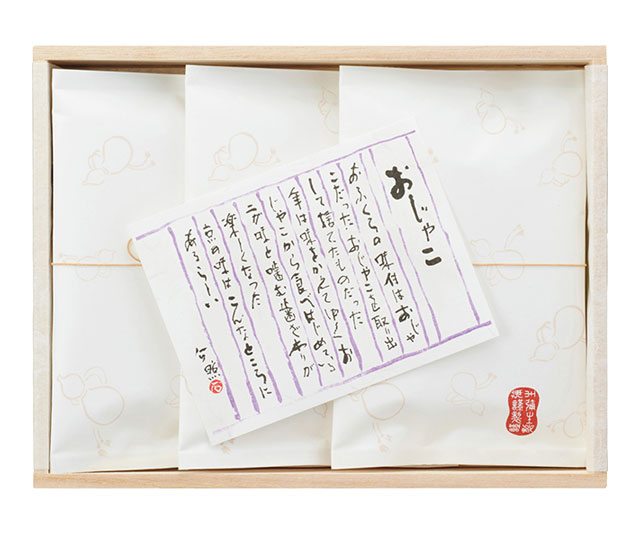 おじゃこ
おふくろの味付はおじゃ
こだった おじゃこを取り出
して捨てたものだった
年は味をかえてゆく お
じゃこから食べはじめている
二分咀と噛む歯ざわりが
楽しくなった
京の味はこんなところに
あるらしい